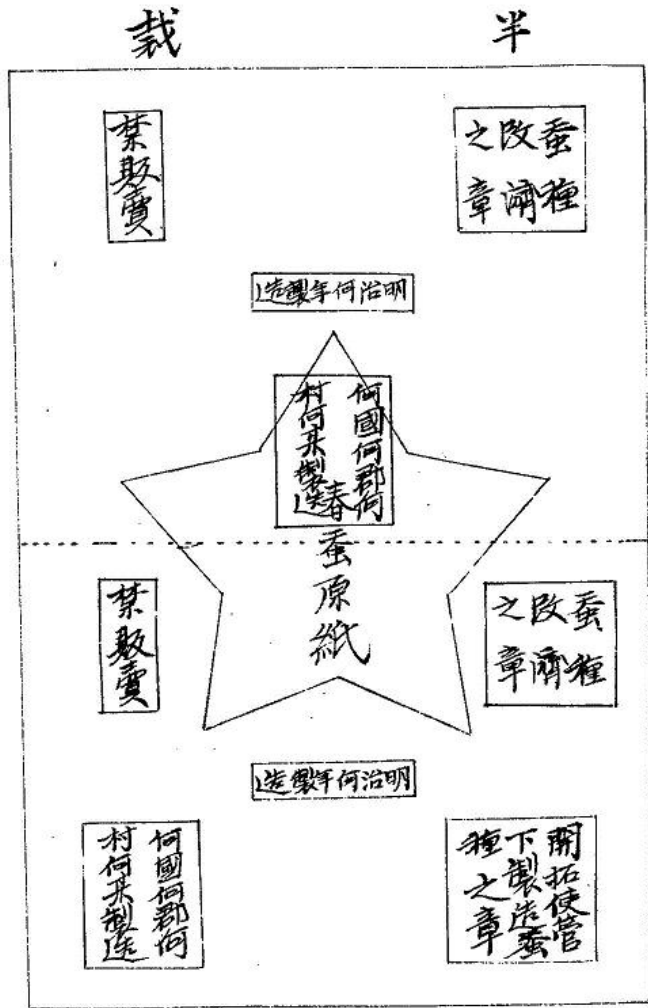 半裁
蚕種
改濟
之章
禁販賣
明治何年製造
何國何郡何
村何某製造
春蚕原紙
蚕種
改濟
之章
禁販賣
明治何年製造
開拓使管
下製造蚕
種之章
何國何郡何
村何某製造